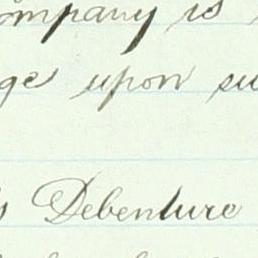 ompany is
ge upon su
s Debenture